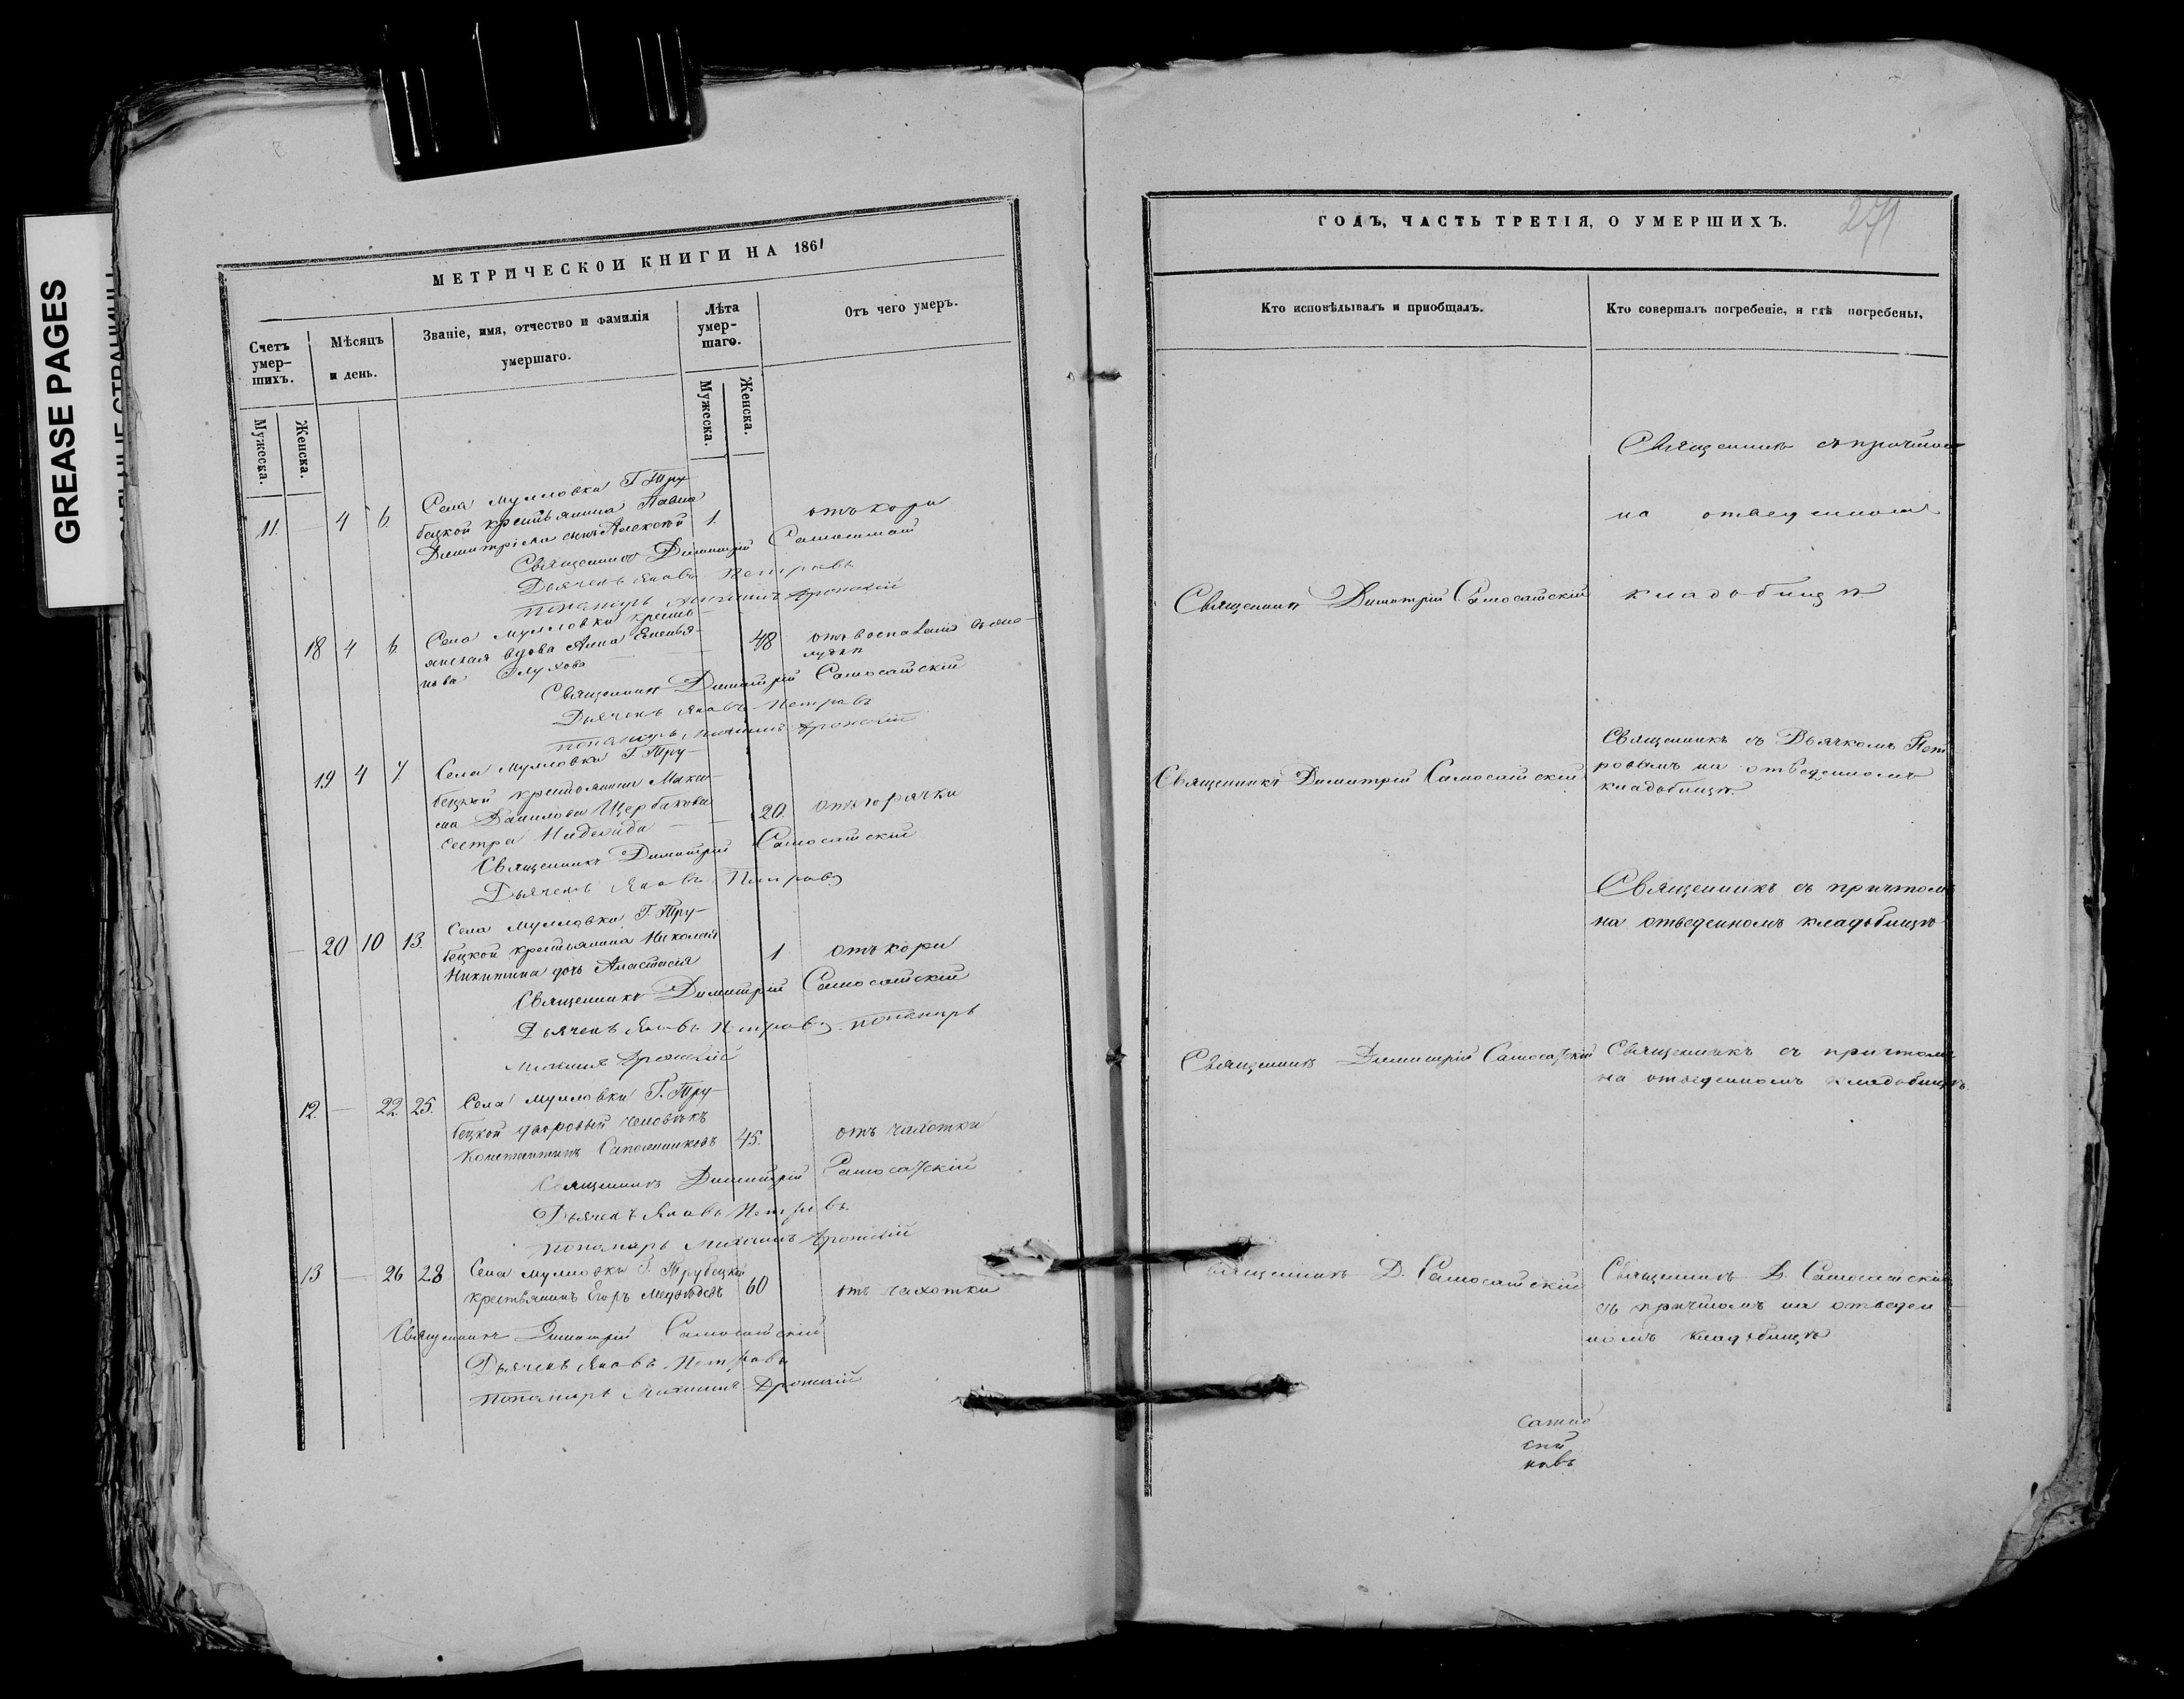 GREASE PAGES
МЕТРИЧЕСКОЙ КНИГИ НА 1861
Счетъ умер-
шихъ.
Мѣсяцъ
и день.
Званіе, имя, отчество и фамилія
умершаго.
Лѣта
умер-
шаго.
Отъ чего умеръ.
Мужеска.
Женска.
Мужеска.
Женска.
11. — 4 6. Села Мулловки Г. Тру
бецкой крестьянина Павла
Димитріева сынъ Алексѣй 1. отъ кори
Священникъ Димитрій Самосатскій
Дьячекъ Яковъ Петровъ
пономарь Михаилъ
18 4 6. Села Мулловки кресть-
янская вдова Анна Емелья-
нова 48 отъ воспаленія въ же-
лудкѣ
Священникъ Димитрій Самосатскій
Дьячекъ Яковъ Петровъ
пономарь Михаилъ
19 4 7 Села Мулловки Г. Тру-
бецкой крестьянина Макси-
ма Данилова Щербакова
сестра Надежда — 20. отъ горячки
Священникъ Димитрій Самосатскій
Дьячекъ Яковъ Петровъ
— 20 10 13. Села Мулловки Г. Тру-
бецкой крестьянина Николая
Никитина дочь Анастасія 1 отъ кори
Священникъ Димитрій Самосатскій
Дьячекъ Яковъ Петровъ пономарь
Михаилъ
12. — 22. 25. Села Мулловки Г. Тру-
бецкой дворовый человѣкъ
Константинъ Сапожниковъ 45. отъ чахотки
Священникъ Димитрій Самосатскій
Дьячекъ Яковъ Петровъ
пономарь Михаилъ
13 — 26 28 Села Мулловки Г. Трубецкой
крестьянинъ Егоръ 60 отъ чахотки
Священникъ Димитрій Самосатскій
Дьячекъ Яковъ Петровъ
пономарь Михаилъ
ГОДЪ, ЧАСТЬ ТРЕТІЯ, О УМЕРШИХЪ.
271
Кто исповѣдывалъ и приобщалъ.
Кто совершалъ погребеніе, и гдѣ погребены.
Священникъ съ причтомъ
на отведенномъ
Священникъ Димитрій Самосатскій кладбищѣ
Священникъ съ Дьячкомъ Пет
ровымъ на отведенномъ
кладбищѣ.
Священникъ Димитрій Самосатскій
Священникъ съ причтомъ
на отведенномъ кладбищѣ
Священникъ Димитрій Самосатскій
Священникъ съ причтомъ
на отведенномъ кладбищѣ.
Священникъ Д. Самосатскій
Священникъ Д. Самосатскій
съ причтомъ на отведен-
номъ кладбищѣ